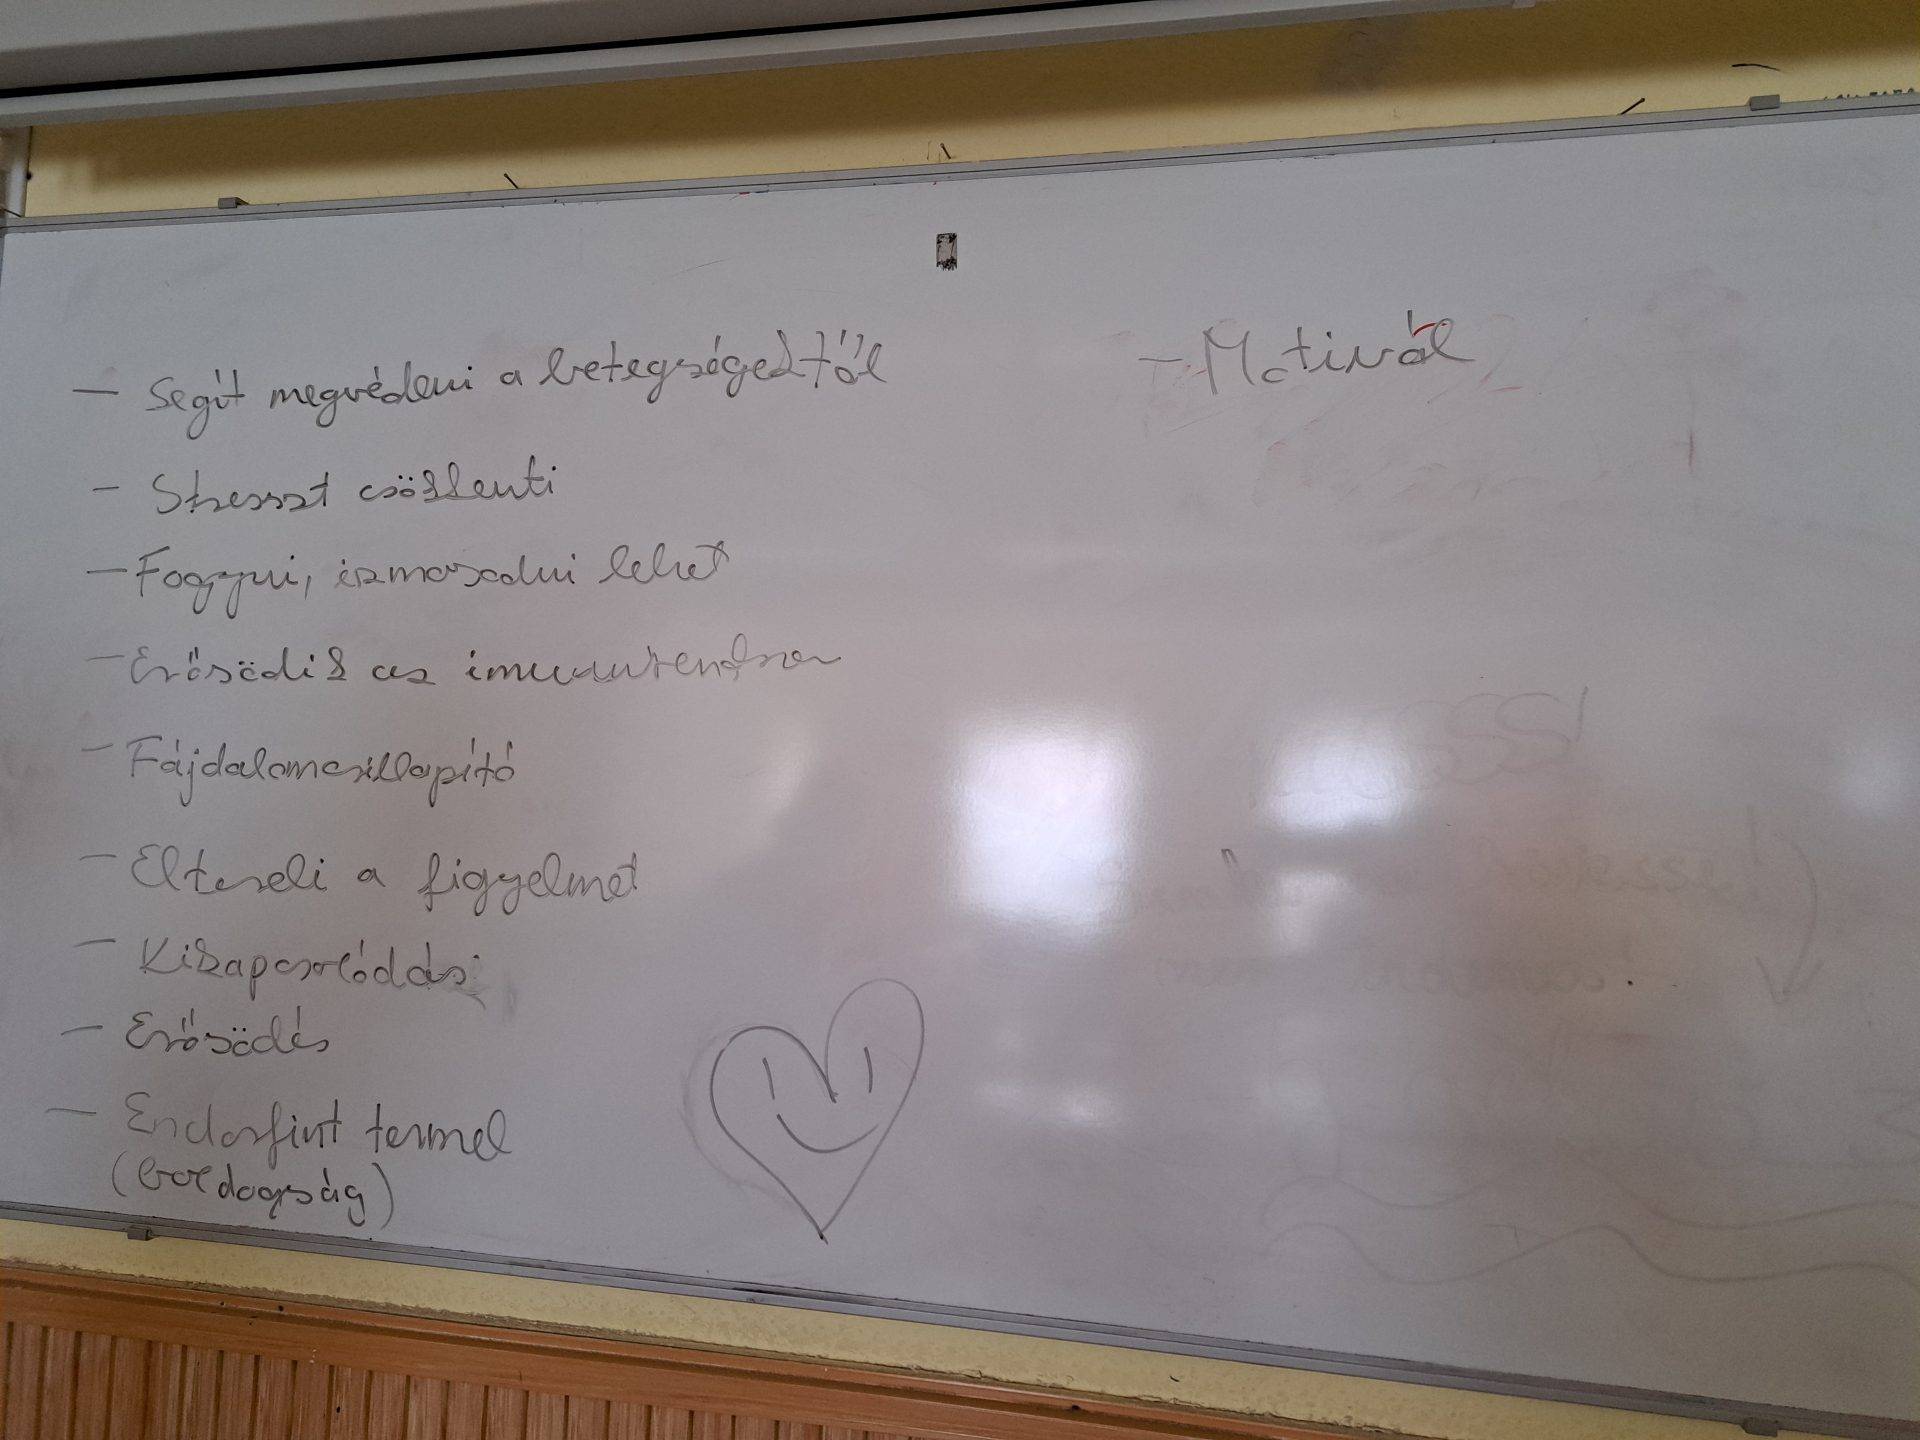 - Segít megvédeni a betegségektől
- Stresszt csökkenti
- Fogyni, izmosodni lehet
- Erősödik az imunrendszer
- Fájdalomcsillapító
- Eltereli a figyelmet
- Kikapcsolódás
- Erősödés
- Endorfint termel
(boldogság)
- Motivál